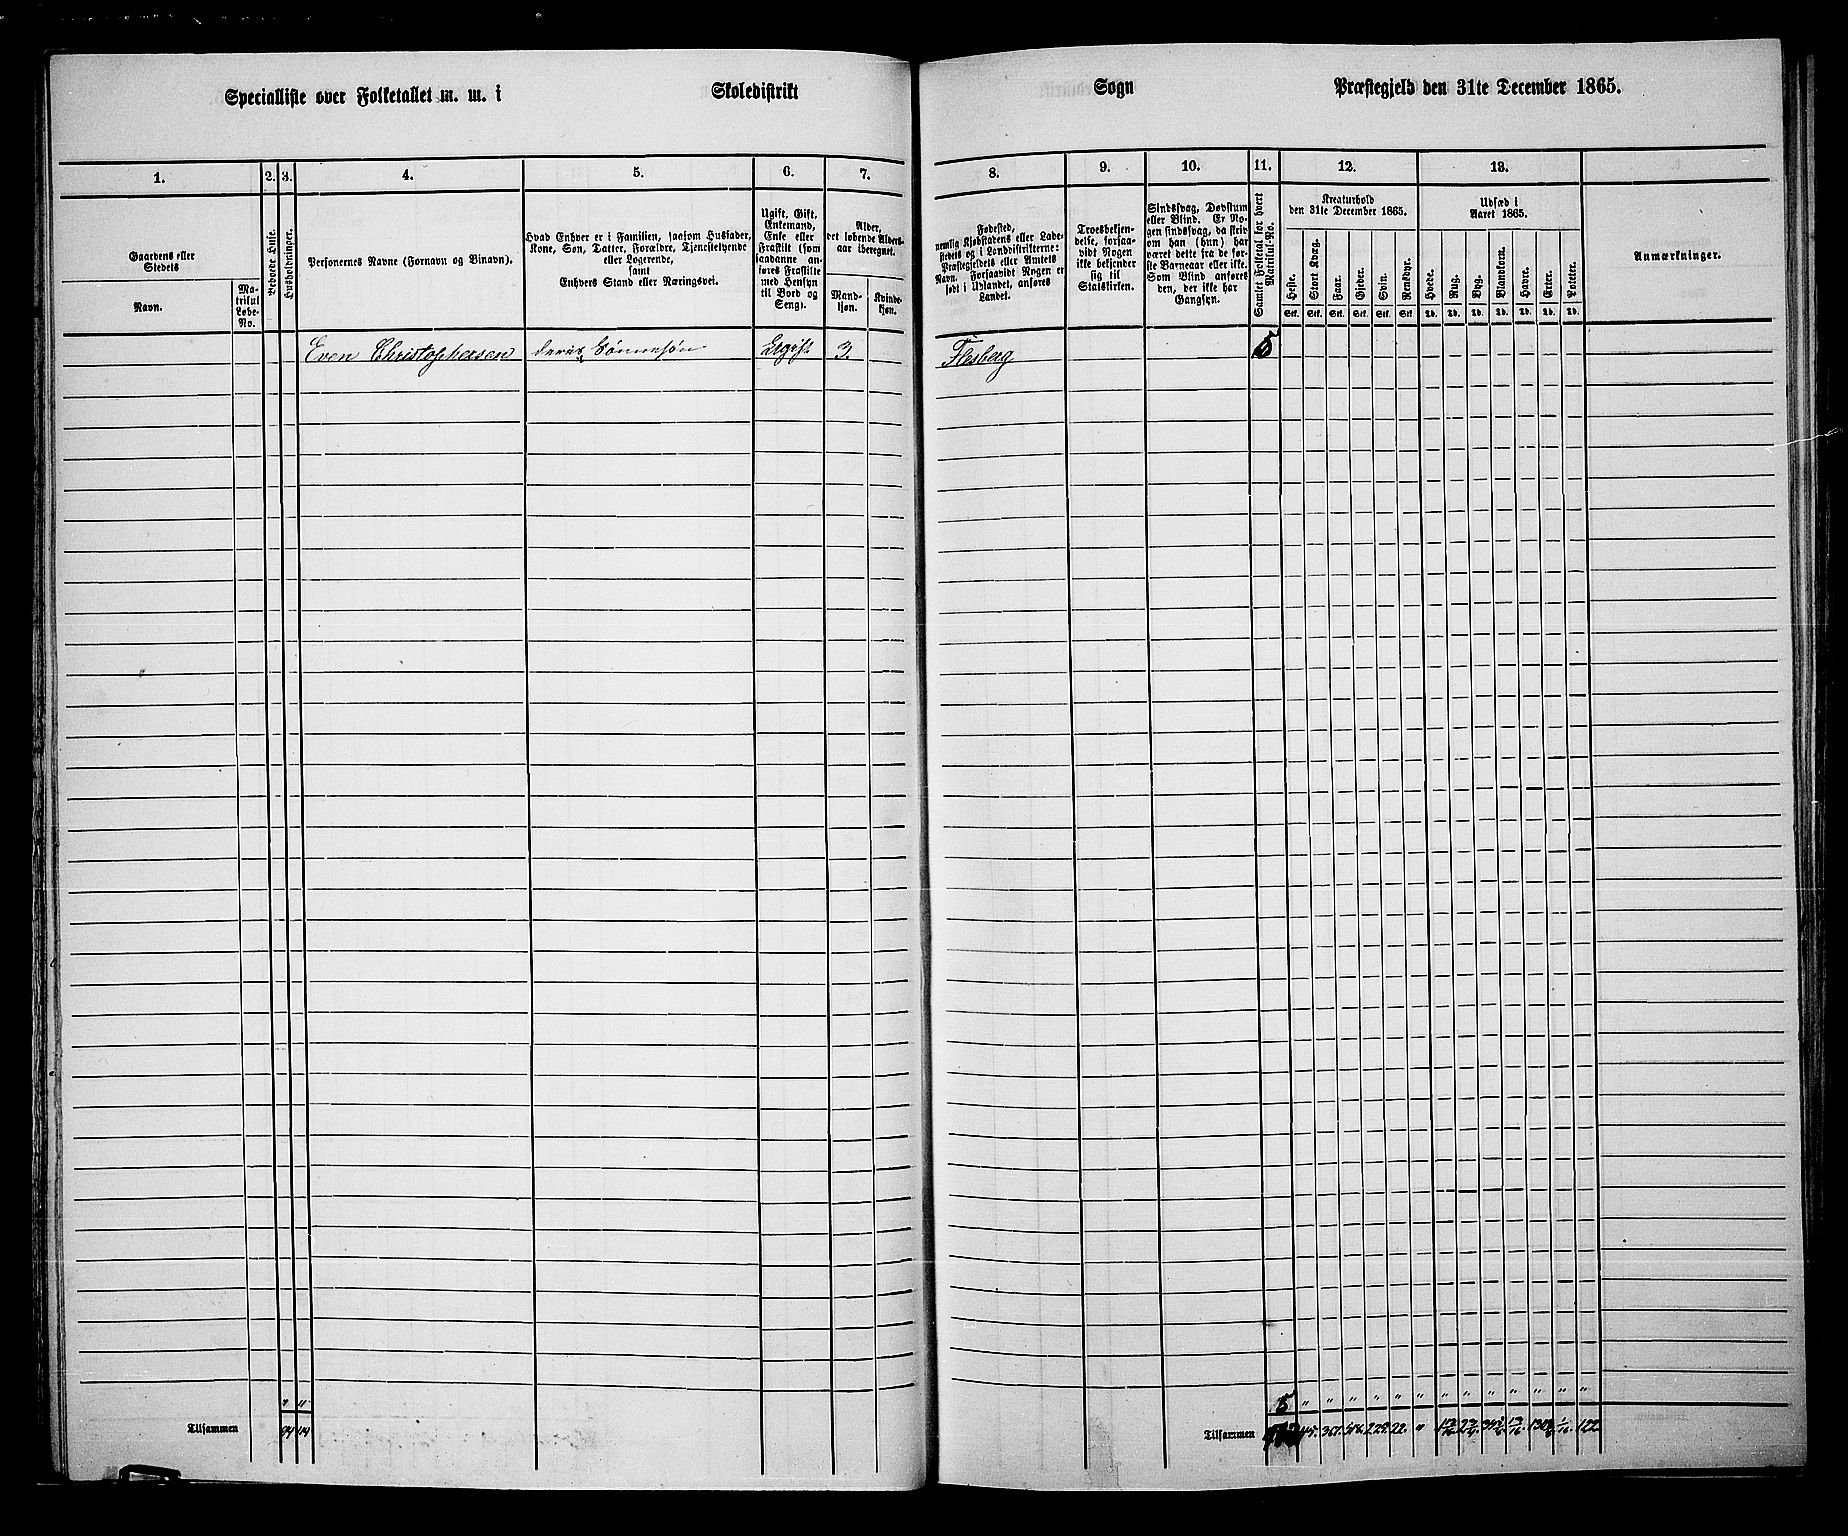 Specialliste over Folketallet m. m. i Skoledistrikt Sogn Præstegjeld den 31te December 1865.
1. 2. 3. 4. 5. 6. 7. 8. 9. 10. 11. 12. 13.
Gaardens eller Stedets
Navn.
Matrikul Løbe-No.
Beboede Huse.
Husholdninger.
Personernes Navne (Fornavn og Binavn).
Hvad Enhver er i Familien, saasom Husfader,
Kone, Søn, Datter, Forældre, Tjenestetyende
eller Logerende,
samt
Enhvers Stand eller Næringsvei.
Ugift, Gift,
Enkemand,
Enke eller
Fraskilt (som
saadanne an-
føres Fraskilte
med Hensyn
til Bord og
Seng).
Alder,
det løbende Alders-
aar iberegnet.
Mand-
kjøn.
Kvinde-
kjøn.
Fødested,
nemlig Kjøbstadens eller Lade-
stedets og i Landdistrikterne:
Præstegjeldets eller Amtets
Navn. Forsaavidt Nogen er
født i Udlandet, anføres
Landet.
Troesbekjen-
delse, forsaa-
vidt Nogen
ikke bekjender
sig til
Statskirken.
Sindssvag, Døvstum
eller Blind. Er No-
gen sindssvag, da skriv
om han (hun) har
været dette fra de før-
ste Barneaar eller ikke.
Som Blind anføres
den, der ikke har
Gangsyn.
Samlet Folketal for hvert
Matrikul-No.
Kreaturhold
den 31te December 1865.
Heste. Stort Kvæg. Faar. Gjeder. Svin. Rensdyr.
Stk. Stk. Stk. Stk. Stk. Stk.
Udsæd i
Aaret 1865.
Hvede. Rug. Byg. Blandkorn. Havre. Erter. Poteter.
Td. Td. Td. Td. Td. Td. Td.
Anmærkninger.
Even Christophersen deres Sønnesøn Ugift 3. Flesberg 5
" " 5 " " " " " " " " " " " " "
Tilsammen 44 44 Tilsammen 22. " 122